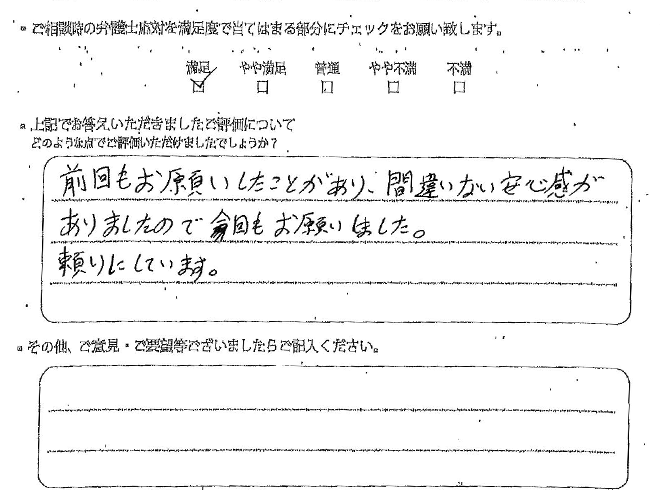 ご相談時の弁護士応対を満足度で当てはまる部分にチェックをお願い致します。
満足 やや満足 普通 やや不満 不満
☑ □ □ □ □
上記でお答えいただきましたご評価について
どのような点でご評価いただけましたでしょうか？
前回もお願いしたことがあり、間違いない安心感が
ありましたので今回もお願いしました。
頼りにしています。
その他、ご意見・ご要望等ございましたらご記入ください。